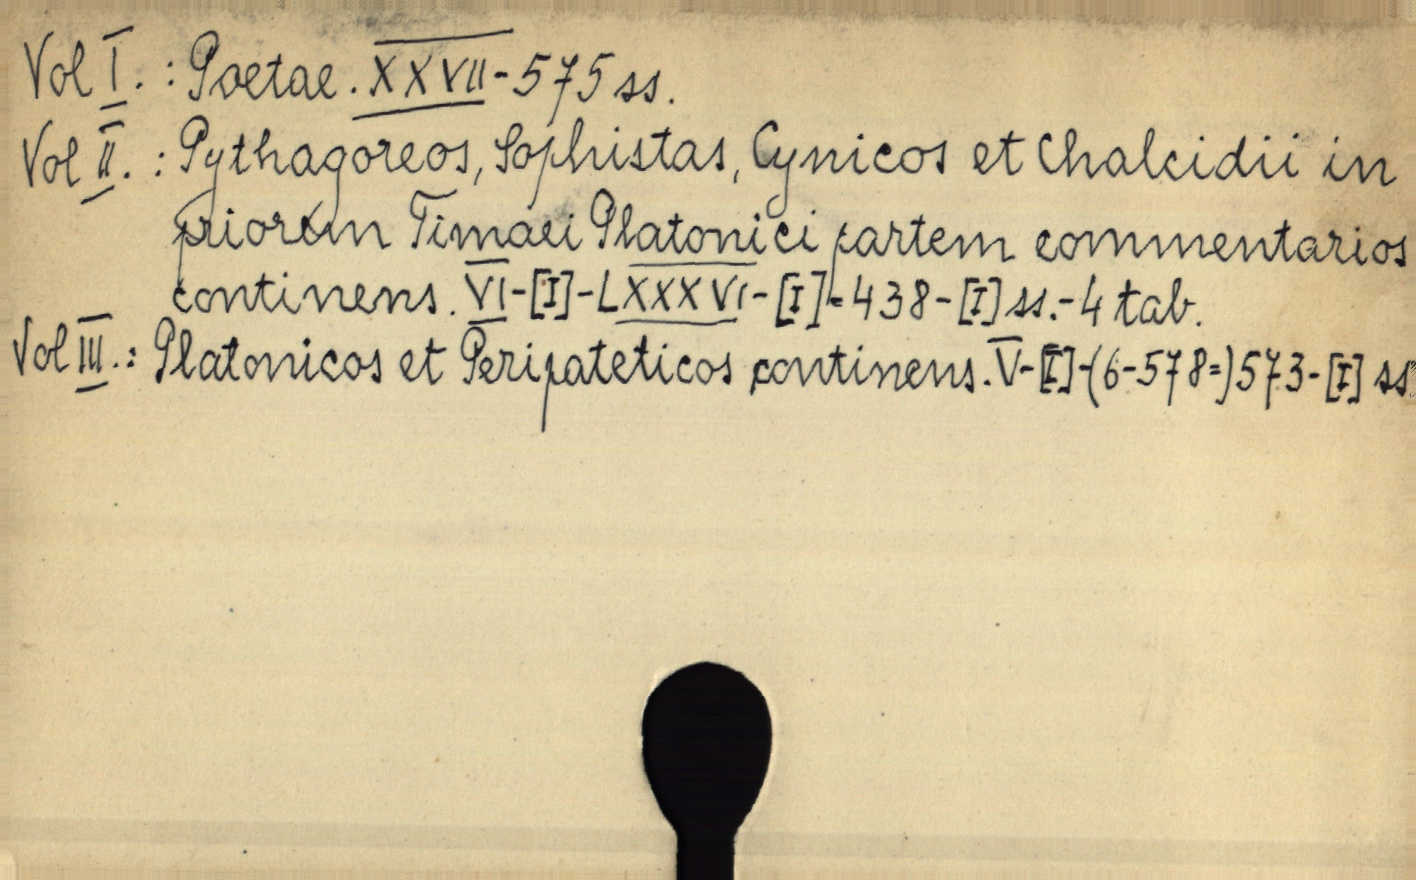 Vol I. : Poetae. XXVII-575 ss.
Vol II. : Pythagoreos, Sophistas, Cynicos et Chalcidii in
priorem Timaei Platonici partem commentarios
continens. VI-[I]-LXXXVI-[I]-438-[I] ss.-4 tab.
Vol III. : Platonicos et Peripateticos continens. V-[I]-(6-578=)573-[I] ss.